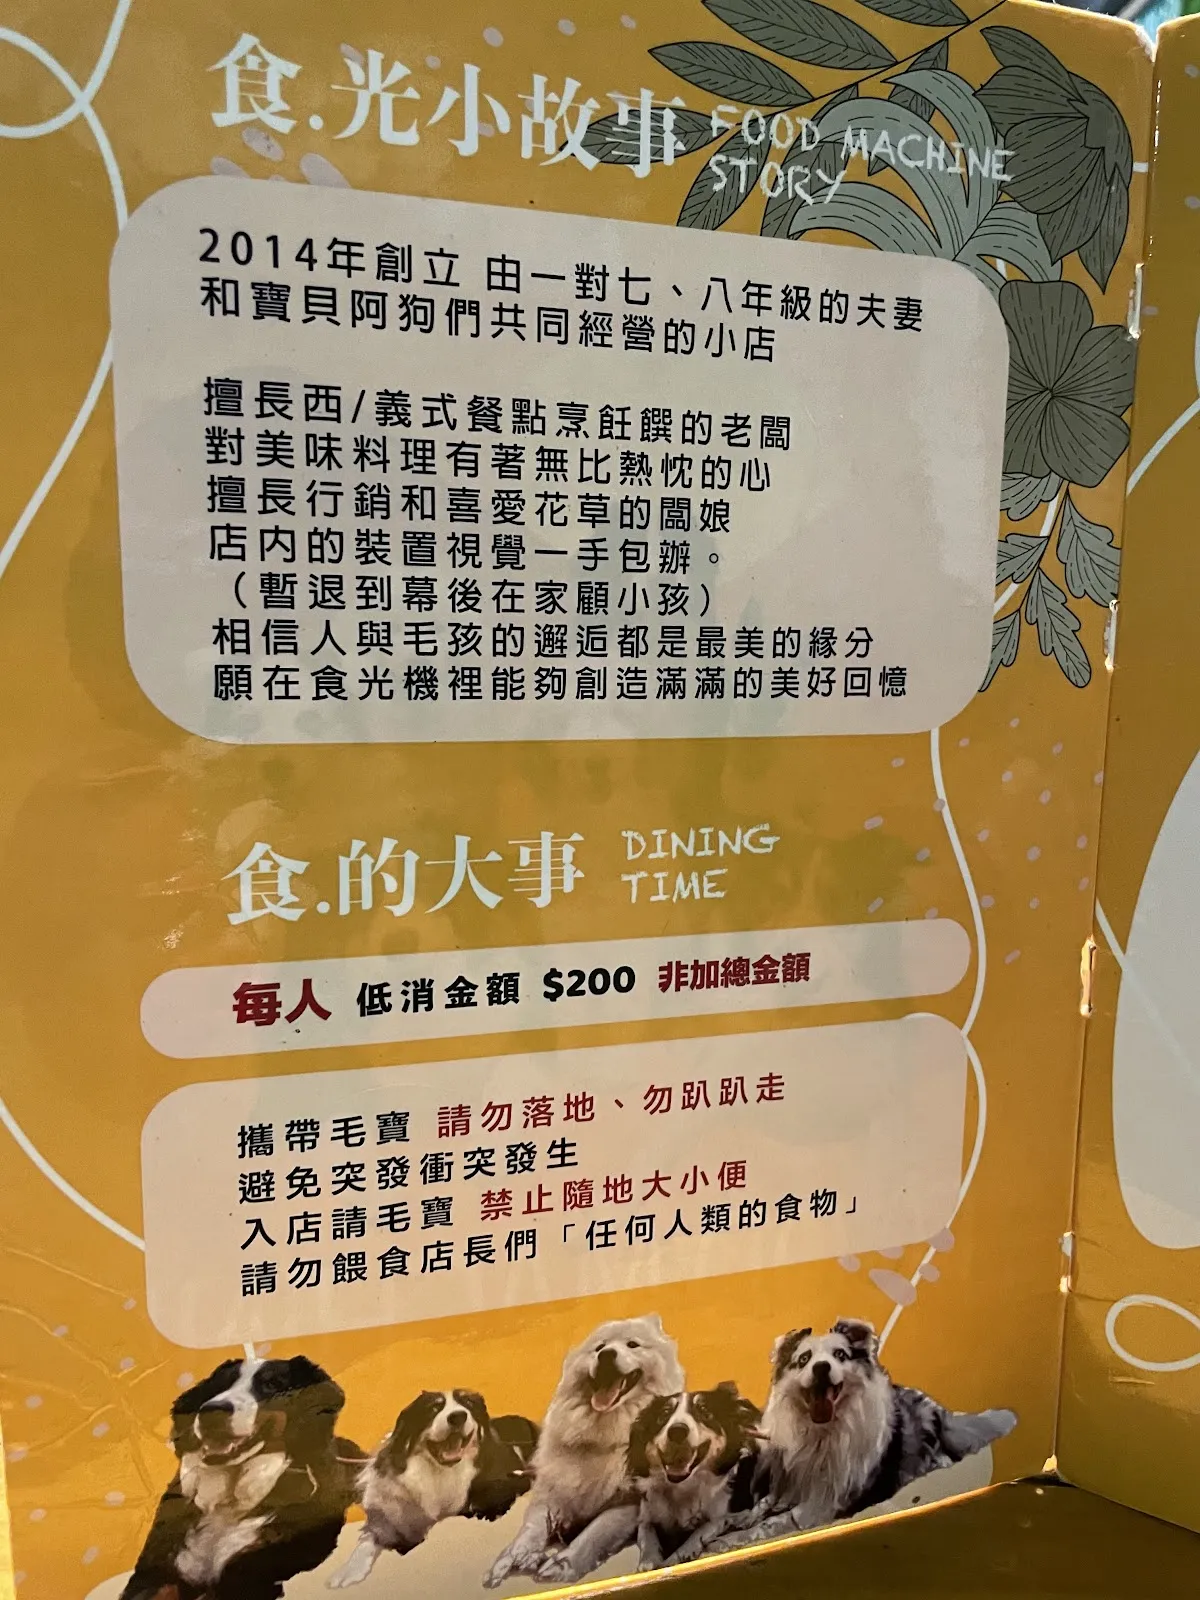 食.光小故事 FOOD MACHINE
STORY
2014年創立 由一對七、八年級的夫妻
和寶貝阿狗們共同經營的小店
擅長西/義式餐點烹飪饌的老闆
對美味料理有著無比熱忱的心
擅長行銷和喜愛花草的闆娘
店內的裝置視覺一手包辦。
（暫退到幕後在家顧小孩）
相信人與毛孩的邂逅都是最美的緣分
願在食光機裡能夠創造滿滿的美好回憶
食.的大事 DINING
TIME
每人 低消金額 $200 非加總金額
攜帶毛寶 請勿落地、勿趴趴走
避免突發衝突發生
入店請毛寶 禁止隨地大小便
請勿餵食店長們「任何人類的食物」